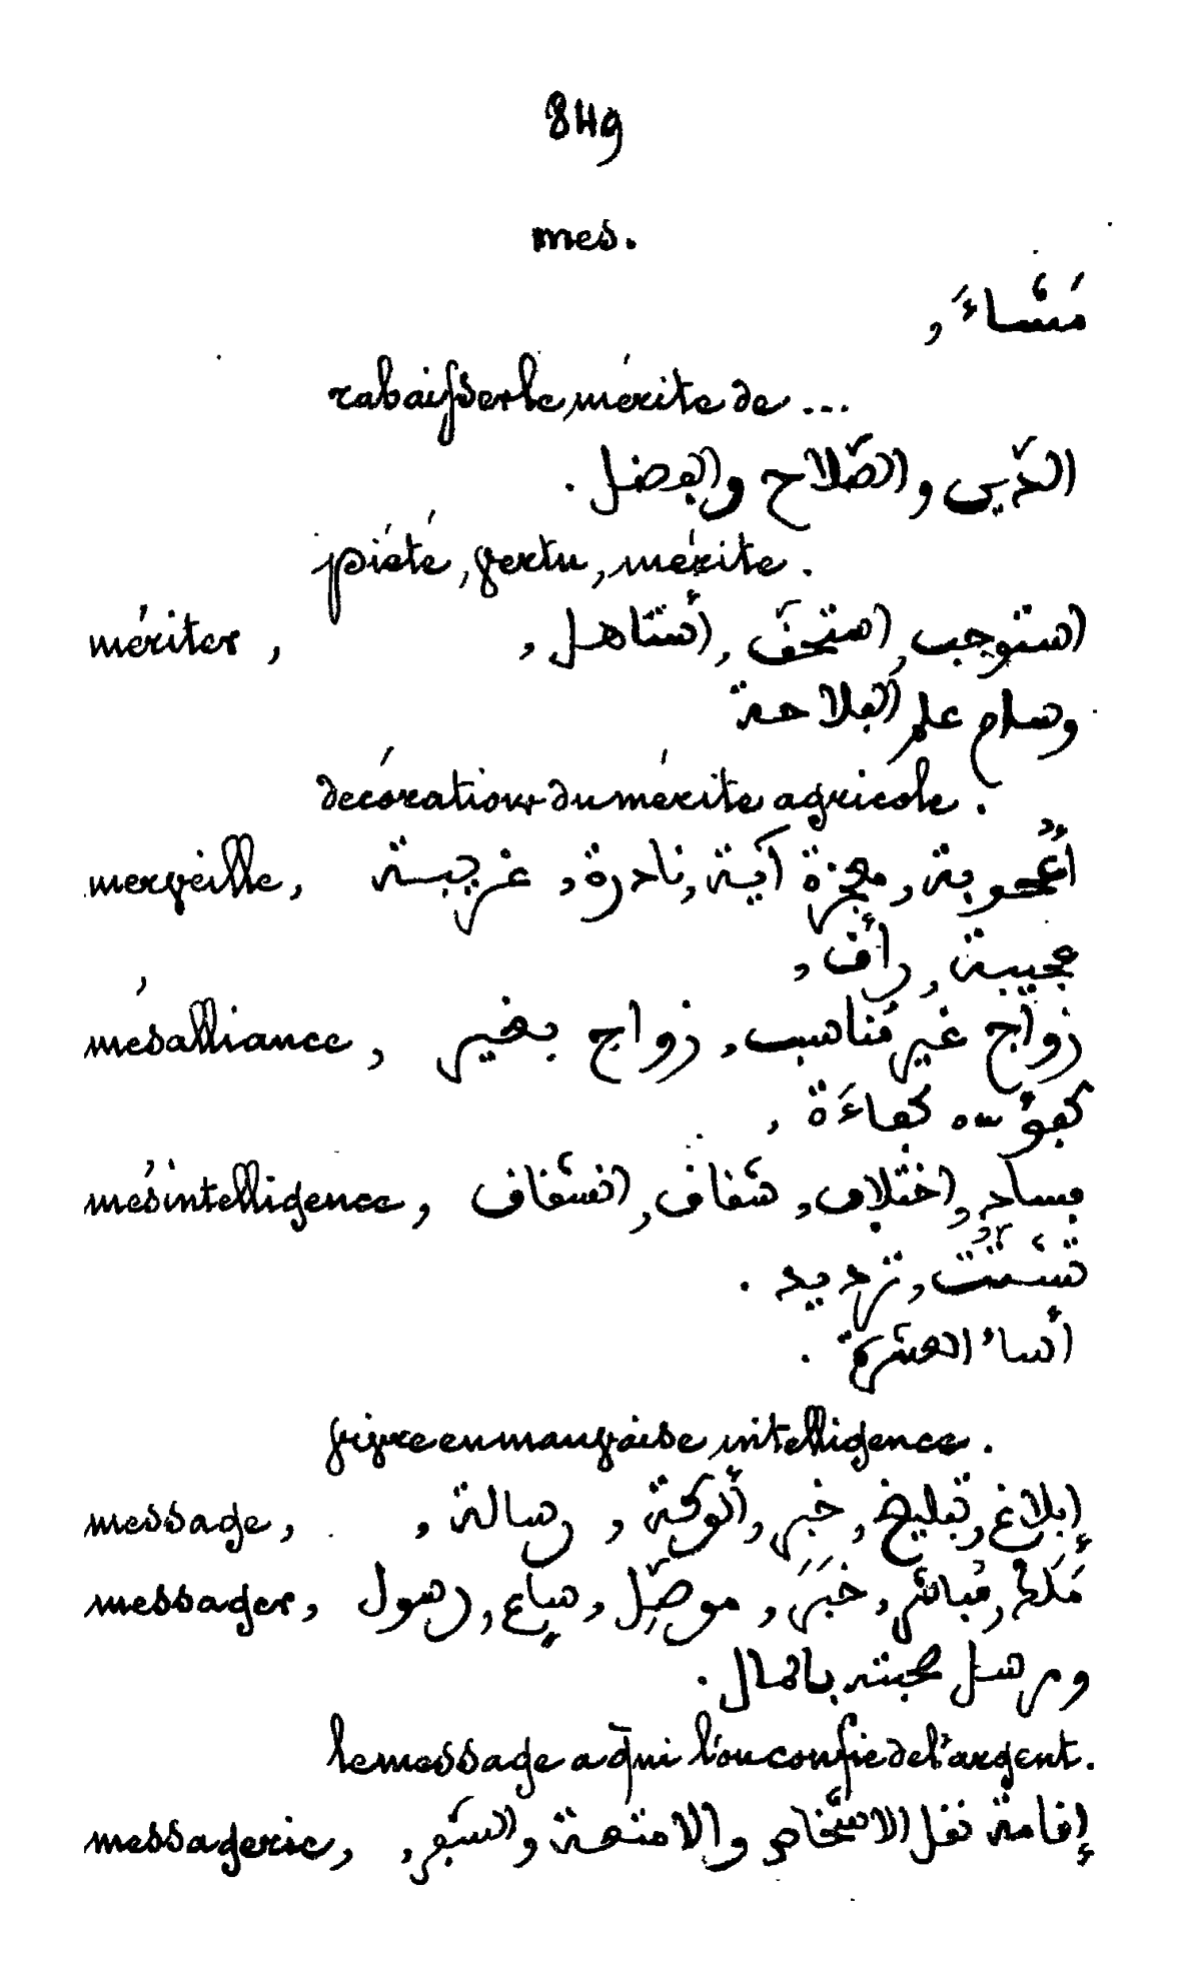 849
mes.
مَشَاءَ ,
rabaisser le mérite de ...
الدّين والصّلاح والفضل .
piété, vertu, mérite .
mériter , استوجب , استحقّ , أستاهل ,
وسام علم الفلاحة
décoration du mérite agricole .
merveille , أُعْجُوبة , معجزة آية , نادرة , غريبة
عجيبة ,
mésalliance , زواج غير مُناسب , زواج بغير
كفؤ كفاءَة ,
mésintelligence , فساد , اختلاف , شقاق , انشقاق
تَشَتُّت , ترديد .
أساء العشرة .
vivre en mauvaise intelligence .
message , إبلاغ , تبليغ , خبر , ألوكة , رسالة ,
messager , مُباشر , خَبَر , موصّل , رسول
ومرسل بالمال .
le message a qui l'on confie de l'argent .
messagerie , إقامة نقل الاشخاص والامتعة والسّفر ,